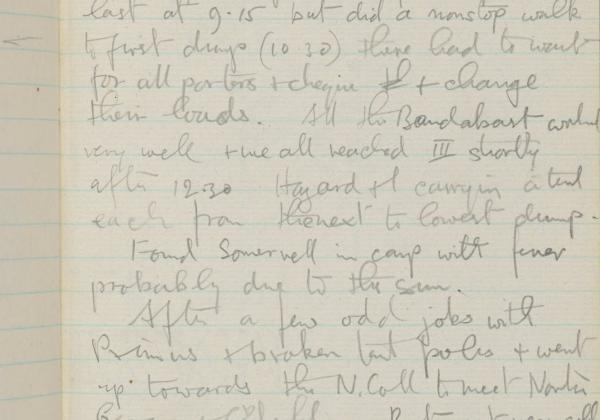 last at 9.15 but did a nonstop walk
to first dump (10.30) there had to wait
for all porters + chegue + change
their loads. All the Bandabast worked
very well + we all reached III shortly
after 12.30 Hazard + I carrying a tent
each from the next to lowest dump.
Found Somervell in camp with fever
probably due to the sun.
After a few odd jobs with
Primus + broken tent poles + went
up towards the N. Coll to meet Norton